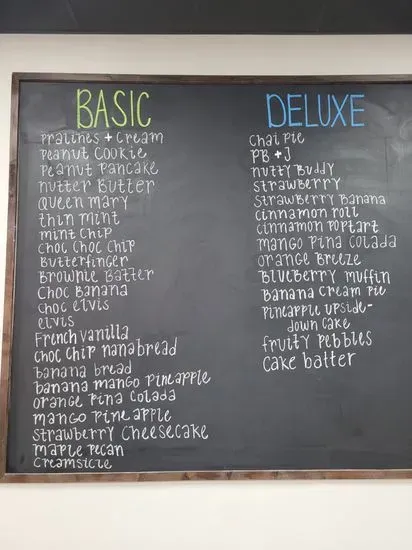 BASIC
Pralines + Cream
Peanut Cookie
Peanut Pancake
nutter Butter
Queen Mary
thin mint
mint chip
choc choc chip
Butterfinger
Brownie Batter
Choc Banana
choc elvis
elvis
French vanilla
choc chip nanabread
banana bread
banana mango pineapple
orange pina colada
mango pineapple
strawberry cheesecake
maple pecan
creamsicle
DELUXE
Chai Pie
PB + J
nutty Buddy
strawberry
Strawberry Banana
cinnamon roll
cinnamon poptart
mango pina colada
orange Breeze
Blueberry muffin
Banana cream pie
pineapple upside-
down cake
fruity pebbles
cake batter